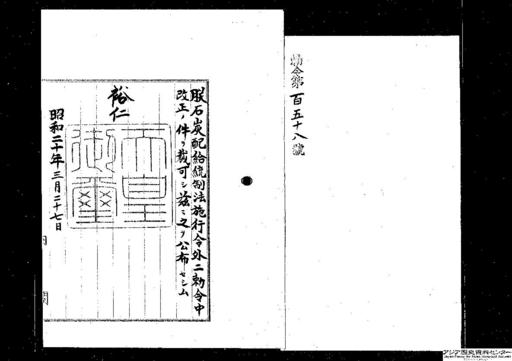 勅令第百五十八號
朕石炭配給統制法施行令外二勅令中
改正ノ件ヲ裁可シ茲ニ之ヲ公布セシム
裕仁
天皇御璽
昭和二十年三月二十七日
内閣
アジア歴史資料センター